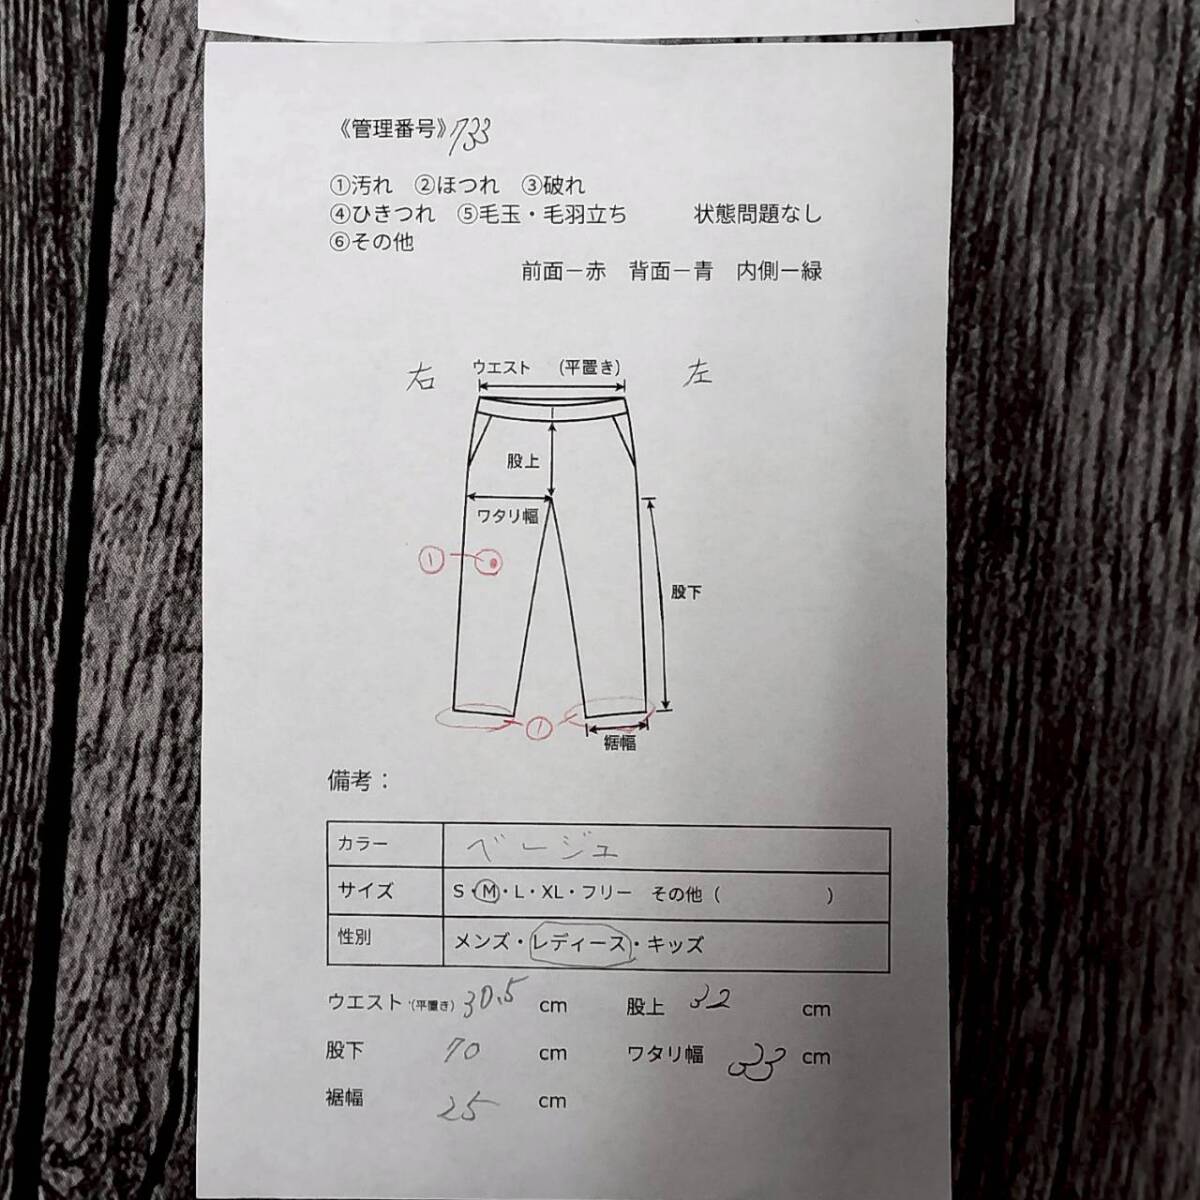 《管理番号》733
①汚れ ②ほつれ ③破れ
④ひきつれ ⑤毛玉・毛羽立ち 状態問題なし
⑥その他
前面ー赤 背面ー青 内側ー緑
右 ウエスト (平置き) 左
股上
ワタリ幅
①
股下
①
裾幅
備考：
カラー ベージュ
サイズ S・M・L・XL・フリー その他（ ）
性別 メンズ・レディース・キッズ
ウエスト(平置き) 30.5 cm 股上 32 cm
股下 70 cm ワタリ幅 33 cm
裾幅 25 cm